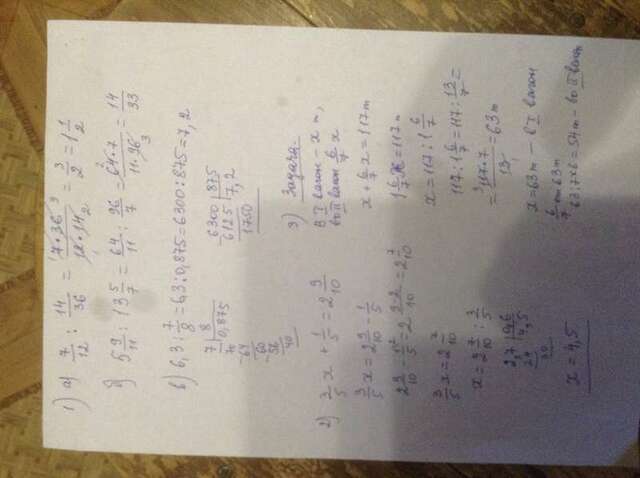 1) а) 7/12 : 14/36 = 7·36/12·14 = 3/2 = 1 1/2
б) 5 9/11 : 13 5/7 = 64/11 : 96/7 = 64·7/11·96 = 14/33
в) 6,3 : 7/8 = 6,3 : 0,875 = 6300 : 875 = 7,2
7 | 8
70 | 0,875
-64
60
-56
40
6300 | 875
6125 | 7,2
1750
2) 3/5 x + 1/5 = 2 9/10
3/5 x = 2 9/10 - 1/5
2 9/10 - 1/5 = 2 9-2/10 = 2 7/10
3/5 x = 2 7/10
x = 2 7/10 : 3/5
2,7 | 0,6
24 | 4,5
30
x = 4,5
3) Задача.
В I вагон - x т,
во II вагон 6/7 x
x + 6/7 x = 117 т
1 6/7 x = 117 т
x = 117 : 1 6/7
117 : 1 6/7 = 117 : 13/7 =
= 117·7/13 = 63 т
x = 63 т - в I вагон
6/7 от 63 т
63 : 7 × 6 = 54 т - во II вагон